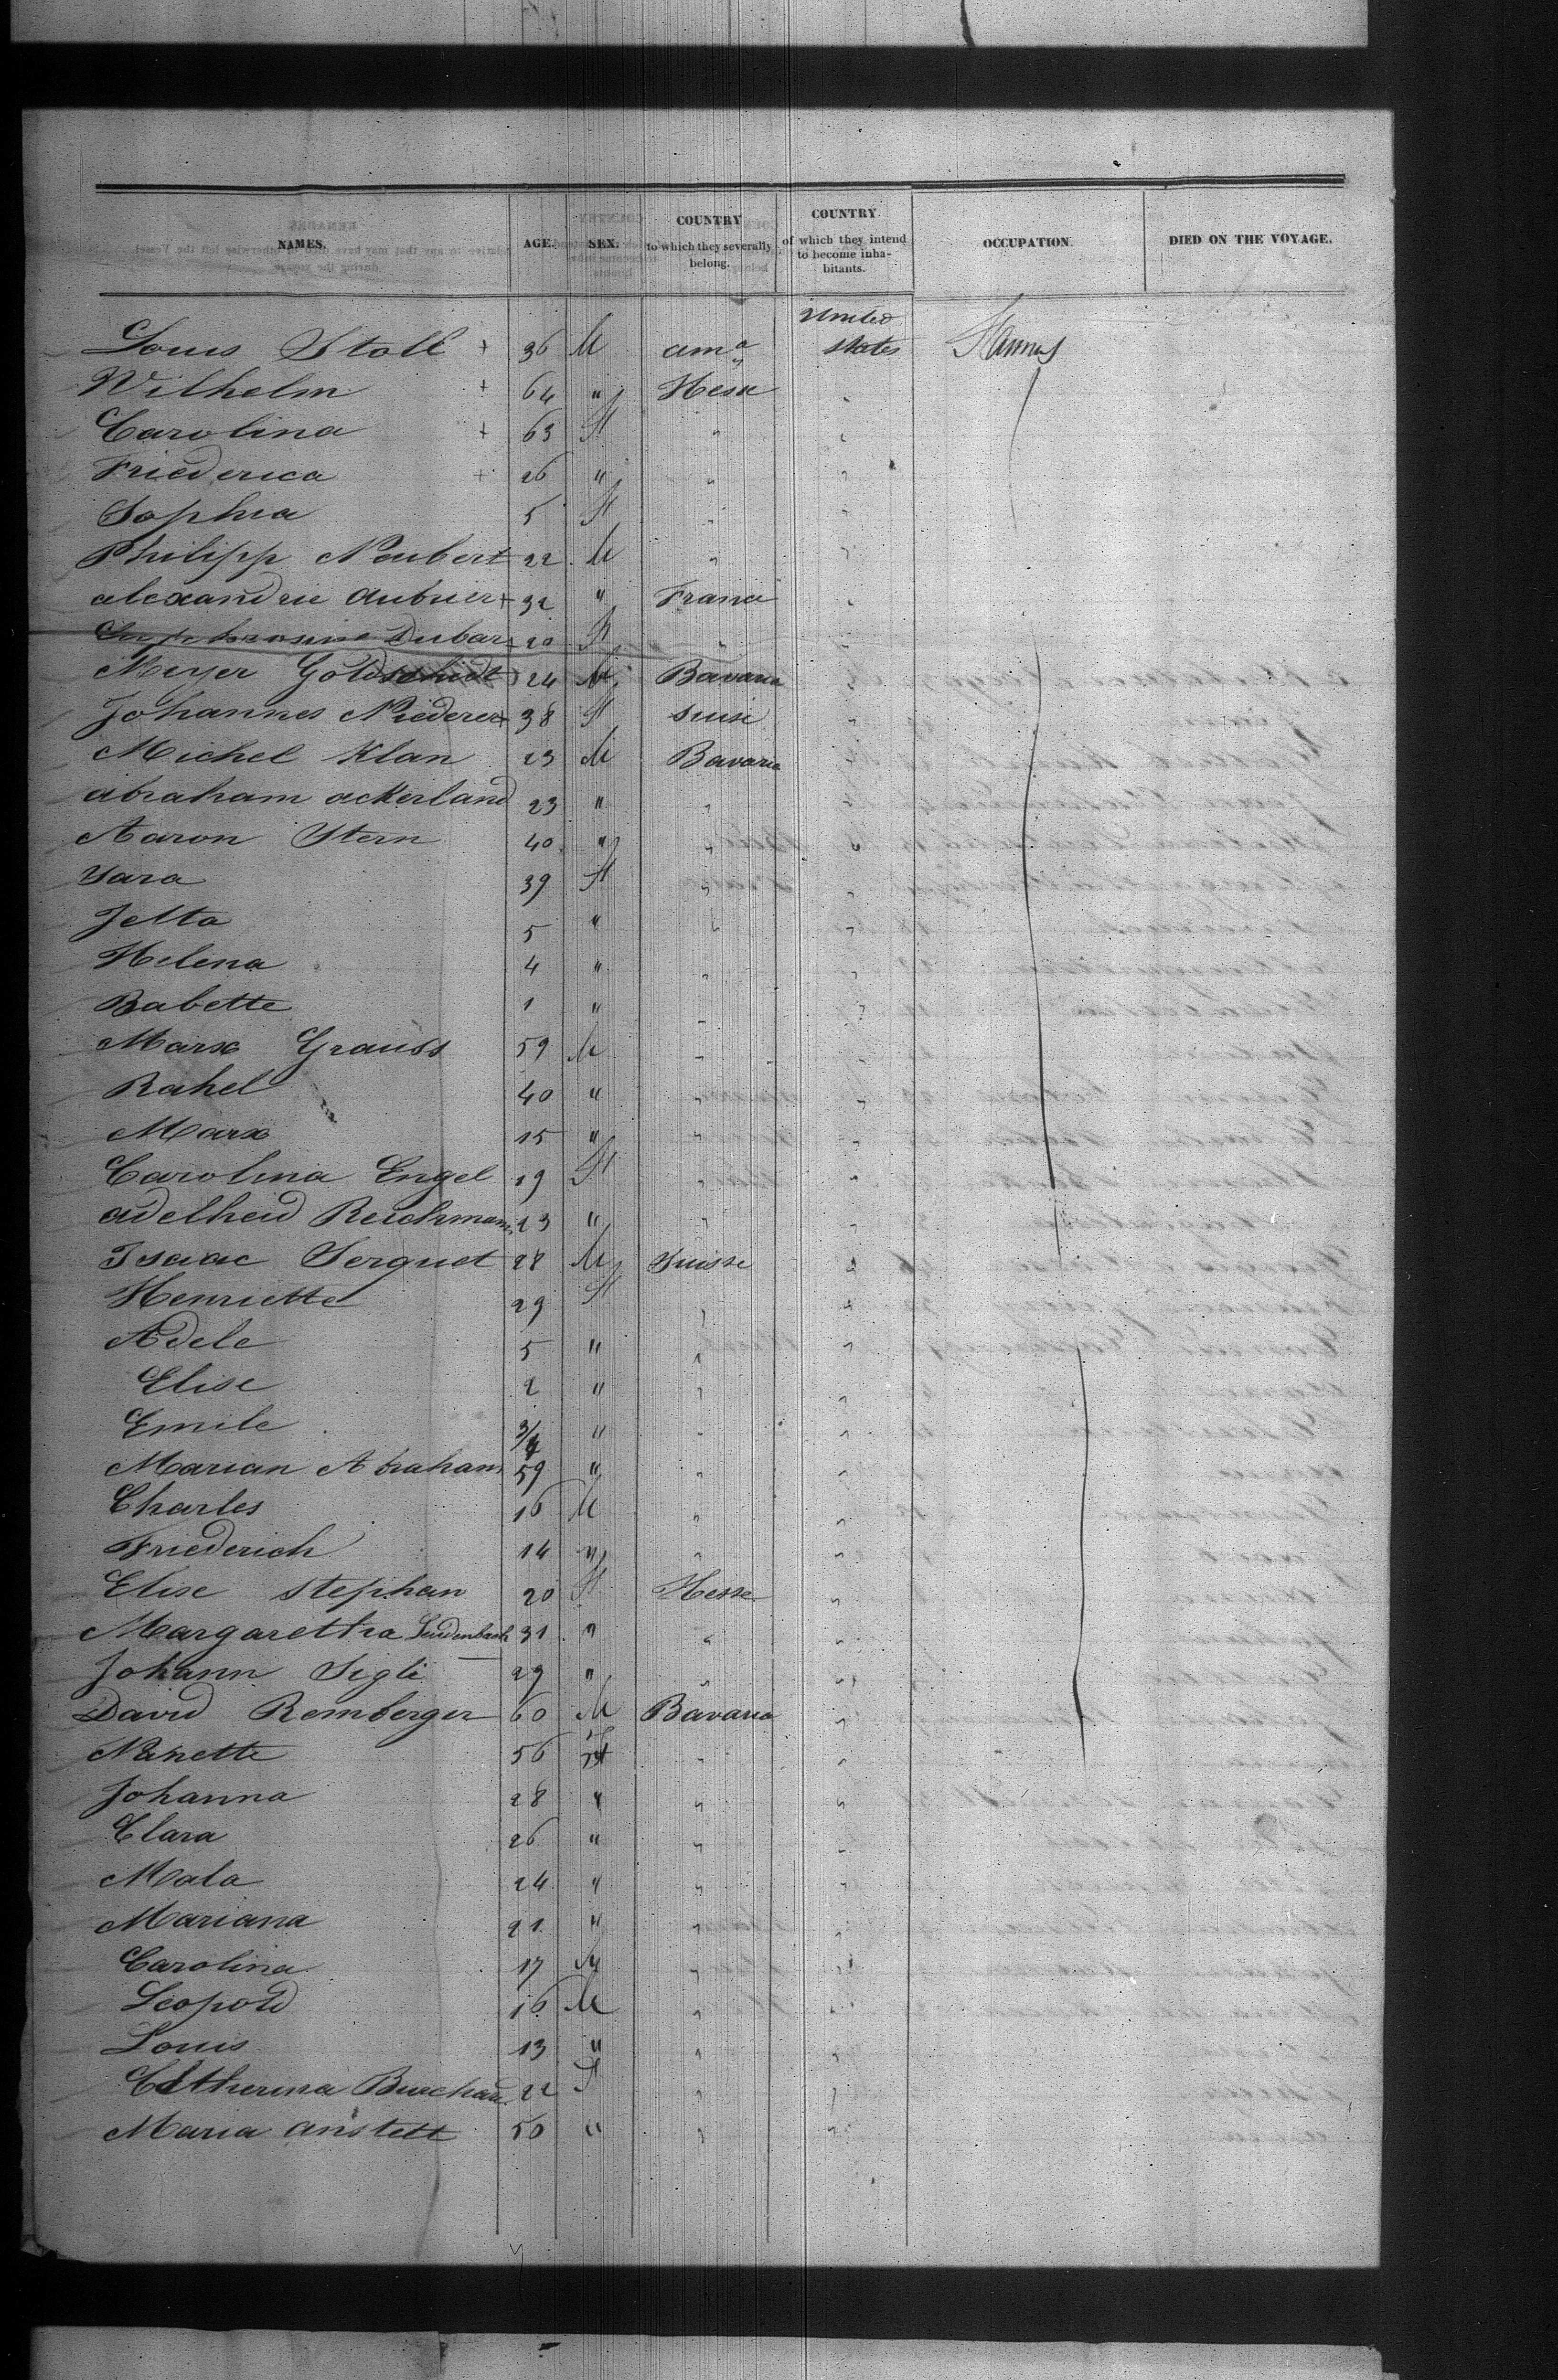 NAMES. AGE. SEX. COUNTRY to which they severally belong. COUNTRY of which they intend to become inhabitants. OCCUPATION. DIED ON THE VOYAGE.
United
Louis Stoll + 36 M ama States
Wilhelm + 64 " Hesse "
Carolina + 63 F " "
Friederica + 26 " " "
Sophia 5 F " "
Philipp Neubert 22 M " "
alexandrie Aubrier + 32 " France "
Euphrosine Dubar 20 F " "
Meyer Goldschidt 24 M Bavaria "
Johannes Niederer + 38 F Suise "
Michel Klan 23 M Bavaria "
abraham ackerland 23 " " "
Aaron Stern 40 " " "
Sara 39 F " "
Jetta 5 " " "
Helena 4 " " "
Babette 1 " " "
Marx Grauss 59 M " "
Rahel 40 " " "
Marx 15 " " "
Carolina Engel 19 F " "
adelheid Reichmann 23 " " "
Isaac Serguet 28 M Suisse "
Henriette 29 F " "
Adele 5 " " "
Elise 2 " " "
Emile 3/4 " " "
Marian Abraham 59 " " "
Charles 16 M " "
Friederich 14 " " "
Elise Stephan 20 F Hesse "
Margarettha 31 " " "
Johann Sigli 29 " " "
David Remberger 60 M Bavaria "
Nanette 56 F " "
Johanna 28 " " "
Clara 26 " " "
Mala 24 " " "
Mariana 21 " " "
Carolina 17 " " "
Leopold 16 M " "
Louis 13 " " "
Catherina 22 F " "
Maria anstett 50 " " "